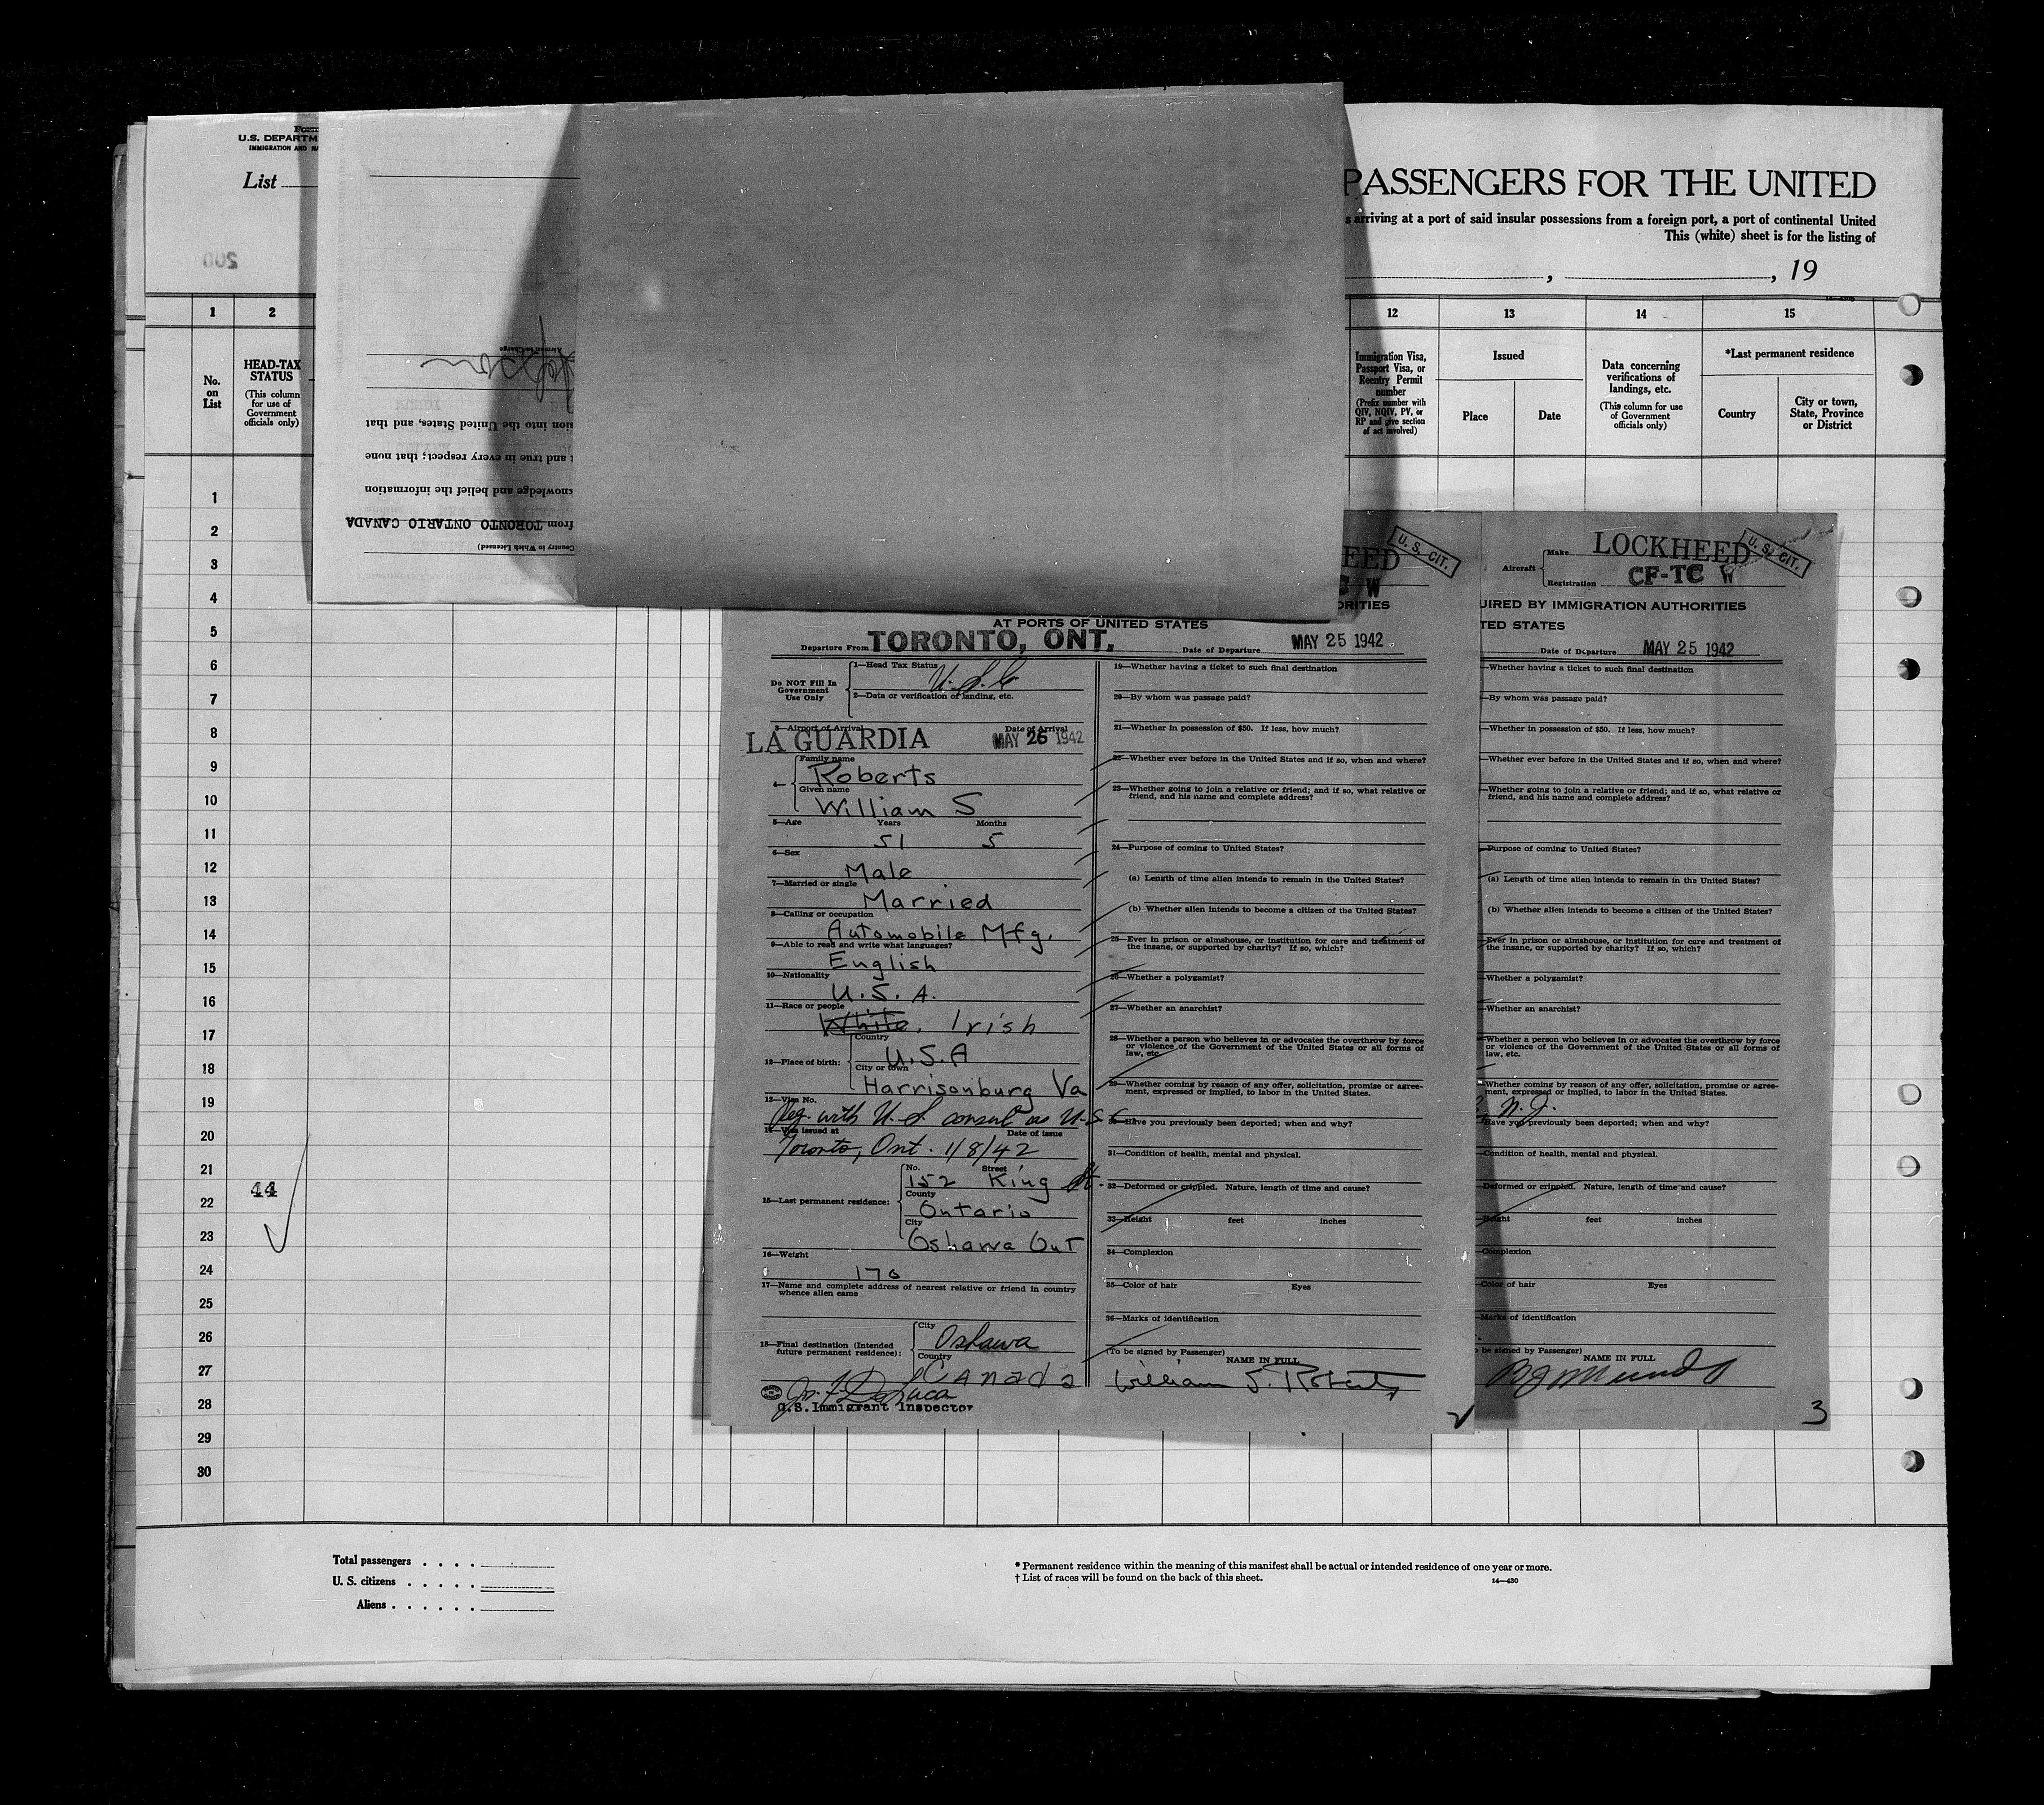 Form
U.S. DEPARTM
IMMIGRATION AND NA
List
200
PASSENGERS FOR THE UNITED
s arriving at a port of said insular possessions from a foreign port, a port of continental United
This (white) sheet is for the listing of
, , 19
1
2
12
13
14
15
No. on List
HEAD-TAX STATUS
(This column for use of Government officials only)
Immigration Visa, Passport Visa, or Reentry Permit number
(Prefix number with QIV, NQIV, PV, or RP and give section of act involved)
Issued
Place
Date
Data concerning verifications of landings, etc.
(This column for use of Government officials only)
*Last permanent residence
Country
City or town, State, Province or District
Country in Which Licensed)
from TORONTO ONTARIO CANADA
knowledge and belief the information
t and true in every respect; that none
sion into the United States, and that
Airman in Charge
1
2
3
4
5
6
7
8
9
10
11
12
13
14
15
16
17
18
19
20
21
22
23
24
25
26
27
28
29
30
44
EED
U. S. CIT.
W
ORITIES
AT PORTS OF UNITED STATES
Departure From TORONTO, ONT. Date of Departure MAY 25 1942
Do NOT Fill In Government Use Only
1—Head Tax Status
U.S.C
2—Data or verification of landing, etc.
3—Airport of Arrival Date of Arrival
LA GUARDIA MAY 26 1942
4
Family name
Roberts
Given name
William S
5—Age Years Months
51 5
6—Sex
Male
7—Married or single
Married
8—Calling or occupation
Automobile Mfg.
9—Able to read and write what languages?
English
10—Nationality
U.S.A.
11—Race or people
White. Irish
12—Place of birth:
Country
U.S.A
City or town
Harrisonburg Va
13—Visa No.
Reg. with U.S consul as U.S.C.
14—Visa issued at Date of issue
Toronto, Ont. 1/8/42
15—Last permanent residence:
No. Street
152 King St.
County
Ontario
City
Oshawa Ont
16—Weight
170
17—Name and complete address of nearest relative or friend in country whence alien came
18—Final destination (Intended future permanent residence):
City
Oshawa
Country
Canada
U.S. Immigrant Inspector
19—Whether having a ticket to such final destination
20—By whom was passage paid?
21—Whether in possession of $50. If less, how much?
22—Whether ever before in the United States and if so, when and where?
23—Whether going to join a relative or friend; and if so, what relative or friend, and his name and complete address?
24—Purpose of coming to United States?
(a) Length of time alien intends to remain in the United States?
(b) Whether alien intends to become a citizen of the United States?
25—Ever in prison or almshouse, or institution for care and treatment of the insane, or supported by charity? If so, which?
26—Whether a polygamist?
27—Whether an anarchist?
28—Whether a person who believes in or advocates the overthrow by force or violence of the Government of the United States or all forms of law, etc.
29—Whether coming by reason of any offer, solicitation, promise or agreement, expressed or implied, to labor in the United States.
30—Have you previously been deported; when and why?
31—Condition of health, mental and physical.
32—Deformed or crippled. Nature, length of time and cause?
33—Height feet inches
34—Complexion
35—Color of hair Eyes
36—Marks of identification
(To be signed by Passenger)
NAME IN FULL
William S. Roberts
2
Aircraft
Make LOCKHEED
U. S. CIT.
Registration CF-TC W
UIRED BY IMMIGRATION AUTHORITIES
TED STATES
Date of Departure MAY 25 1942
—Whether having a ticket to such final destination
—By whom was passage paid?
—Whether in possession of $50. If less, how much?
—Whether ever before in the United States and if so, when and where?
—Whether going to join a relative or friend; and if so, what relative or friend, and his name and complete address?
—Purpose of coming to United States?
(a) Length of time alien intends to remain in the United States?
(b) Whether alien intends to become a citizen of the United States?
—Ever in prison or almshouse, or institution for care and treatment of the insane, or supported by charity? If so, which?
—Whether a polygamist?
—Whether an anarchist?
—Whether a person who believes in or advocates the overthrow by force or violence of the Government of the United States or all forms of law, etc.
—Whether coming by reason of any offer, solicitation, promise or agreement, expressed or implied, to labor in the United States.
N.J.
Have you previously been deported; when and why?
—Condition of health, mental and physical.
—Deformed or crippled. Nature, length of time and cause?
—Height feet inches
—Complexion
—Color of hair Eyes
—Marks of identification
o be signed by Passenger)
NAME IN FULL
3
Total passengers . . . .
U. S. citizens . . . . .
Aliens . . . . . .
* Permanent residence within the meaning of this manifest shall be actual or intended residence of one year or more.
† List of races will be found on the back of this sheet.
14—430